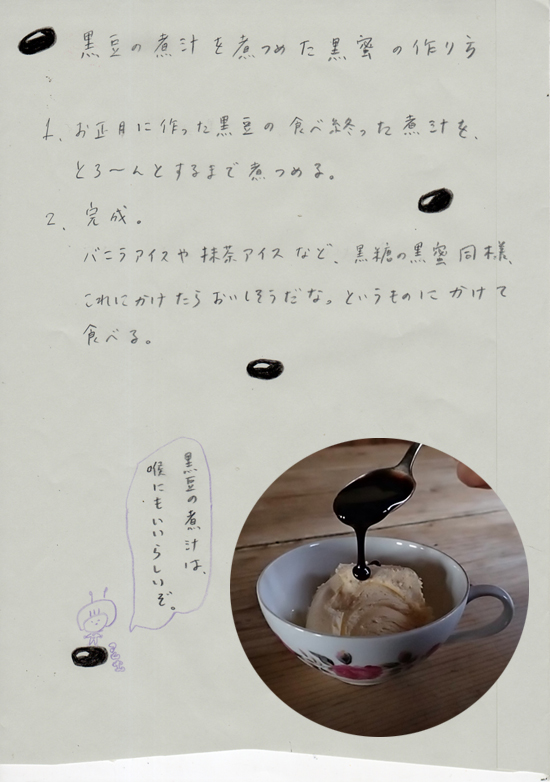 黒豆の煮汁を煮つめた黒蜜の作り方
1、お正月に作った黒豆の食べ終った煮汁を、
とろ〜んとするまで煮つめる。
2、完成。
バニラアイスや抹茶アイスなど、黒糖の黒蜜同様、
これにかけたらおいしそうだな、というものにかけて
食べる。
黒豆の煮汁は、
喉にもいいらしいぞ。